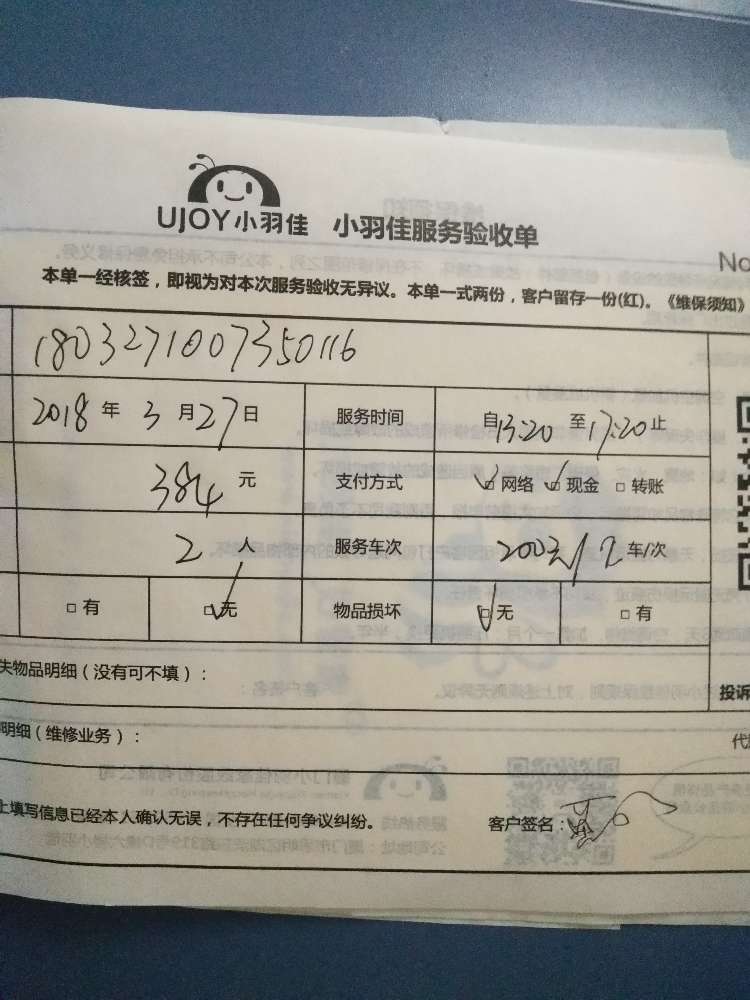 UJOY小羽佳 小羽佳服务验收单
No
本单一经核签，即视为对本次服务验收无异议。本单一式两份，客户留存一份(红)。《维保须知》
1803271007350116
2018 年 3 月 27 日 服务时间 自13:20 至17:20止
384 元 支付方式 网络 现金 转账
2 人 服务车次 200元/2 车/次
有 无 物品损坏 无 有
失物品明细（没有可不填）：
投诉
明细（维修业务）：
上填写信息已经本人确认无误，不存在任何争议纠纷。 客户签名：